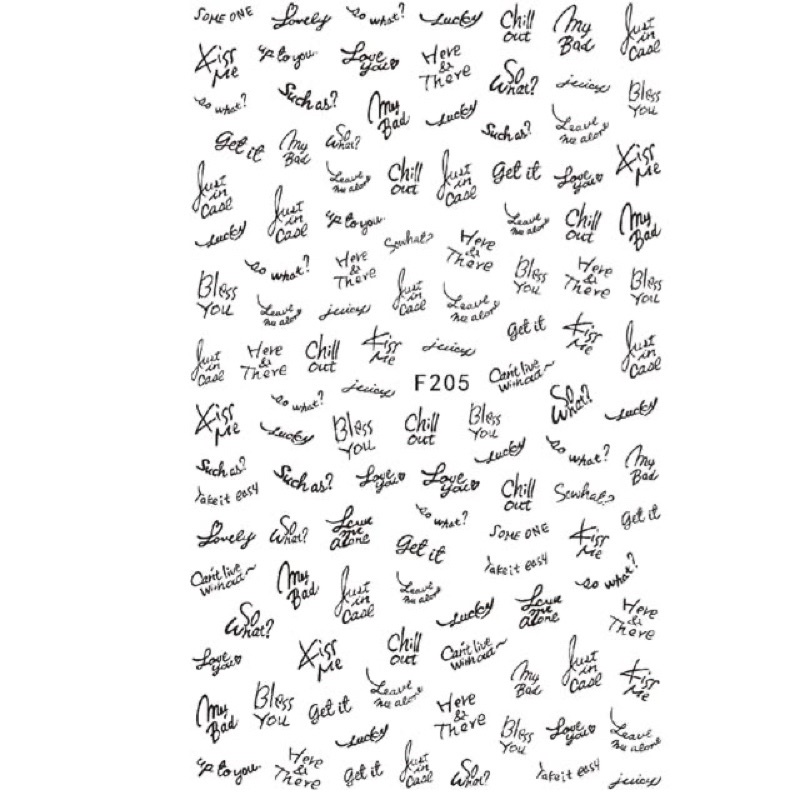 SOME ONE
Lovely
so what?
Lucky
Chill out
My Bad
Just in Case
Kiss Me
up to you.
Love you♥
Here & There
So What?
juicy
Bless You
so what?
Such as?
My Bad
Lucky
Such as?
Leave me alone
Get it
My Bad
So What?
Kiss Me
Just in Case
Leave me alone
Chill out
Just in Case
Get it
Love you♥
Lucky
Just in Case
up to you.
So what?
Here & There
Leave me alone
Chill out
My Bad
Bless You
so what?
Here & There
Just in Case
Leave me alone
Bless You
Here & There
Bless You
Leave me alone
juicy
Get it
Kiss Me
Just in Case
Just in Case
Here & There
Chill out
Kiss Me
juicy
juicy
F205
Can't live without~
So What?
Lucky
Kiss Me
so what?
Lucky
Bless You
Chill out
Bless You
Lucky
so what?
My Bad
Such as?
Take it easy
Such as?
Love you♥
Love you♥
Chill out
So what?
Get it
Lovely
So What?
Leave me alone
so what?
Get it
SOME ONE
Take it easy
Kiss Me
so what?
Can't live without~
My Bad
Just in Case
Leave me alone
Lucky
Leave me alone
Here & There
So What?
Love you♥
Kiss Me
Chill out
Can't live without~
My Bad
Just in Case
Kiss Me
My Bad
Bless You
Get it
Leave me alone
Here & There
Lucky
Bless You
Love you♥
Leave me alone
up to you.
Here & There
Get it
Just in Case
So What?
Take it easy
juicy